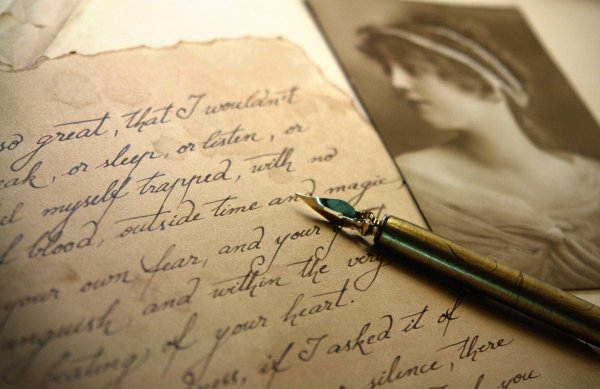 so great, that I wouldn't
eak, or sleep, or listen, or
el myself trapped, with no
f blood, outside time and magic,
your own fear, and your
anguish and within the very
beating of your heart.
ness, if I asked it of
silence, there
you